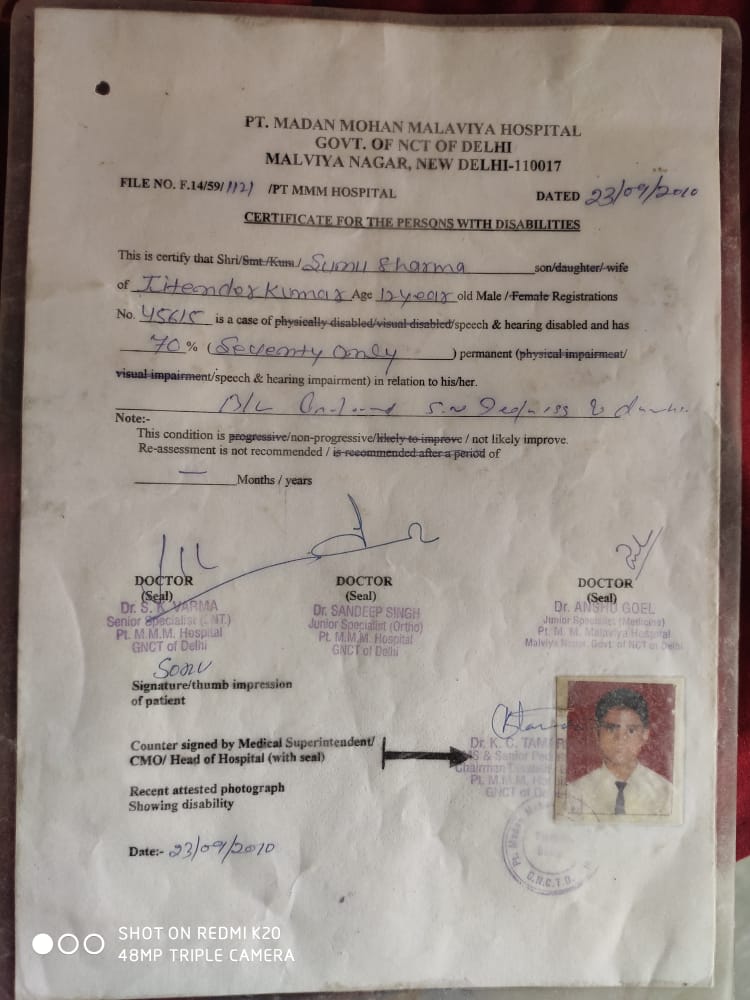 PT. MADAN MOHAN MALAVIYA HOSPITAL
GOVT. OF NCT OF DELHI
MALVIYA NAGAR, NEW DELHI-110017
FILE NO. F.14/59/1121 /PT MMM HOSPITAL
DATED 23/09/2010
CERTIFICATE FOR THE PERSONS WITH DISABILITIES
This is certify that Shri/Smt./Kum./ Sharma son/daughter/ wife
of Kumar Age 12 year old Male / Female Registrations
No. 45615 is a case of physically disabled/visual disabled/speech & hearing disabled and has
70 % (Seventy Only ) permanent (physical impairment/
visual impairment/speech & hearing impairment) in relation to his/her.
B/L
Note:-
This condition is progressive/non-progressive/likely to improve / not likely improve.
Re-assessment is not recommended / is recommended after a period of
— Months / years
DOCTOR
(Seal)
Dr. S. K. VARMA
Senior Specialist (ENT.)
Pt. M.M.M. Hospital
GNCT of Delhi
DOCTOR
(Seal)
Dr. SANDEEP SINGH
Junior Specialist (Ortho)
Pt. M.M.M. Hospital
GNCT of Delhi
DOCTOR
(Seal)
Dr. ANSHU GOEL
Junior Specialist (Medicine)
Pt. M. M. Malaviya Hospital
Malviya Nagar, Govt. of NCT of Delhi
Sonu
Signature/thumb impression
of patient
Counter signed by Medical Superintendent/
CMO/ Head of Hospital (with seal)
Dr. K. C.
& Senior
Chairman
Pt. M.M.
GNCT of
Recent attested photograph
Showing disability
Pt. Madan
G.N.C.T.D.
Date:- 23/09/2010
SHOT ON REDMI K20
48MP TRIPLE CAMERA